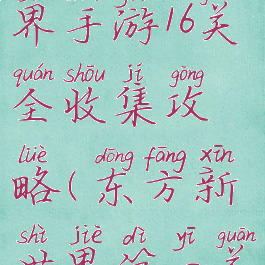 界手游16关
quán shōu jí gōng
全收集攻
lüè dōng fāng xīn
略(东方新
shì jiè dì yī guān